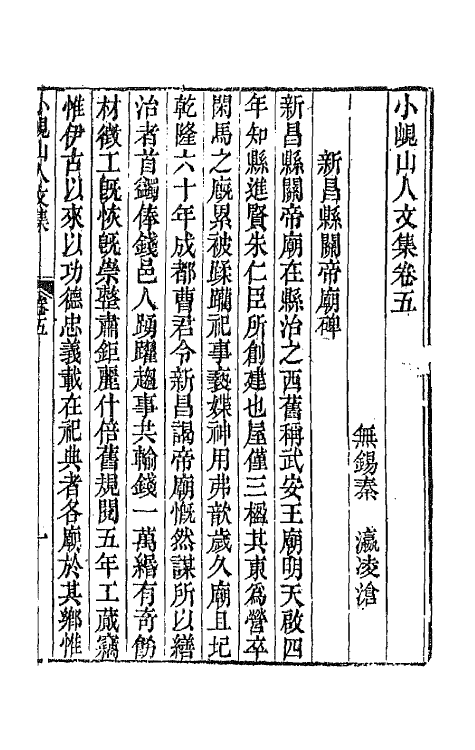 小峴山人文集卷五
無錫秦　瀛凌滄
新昌縣關帝廟碑
新昌縣關帝廟在縣治之西舊稱武安王廟明天啟四
年知縣進賢朱仁臣所創建也屋僅三楹其東為營卒
閑馬之廄累被蹂躪祀事褻媟神用弗歆歲久廟且圮
乾隆六十年成都曹君令新昌謁帝廟慨然謀所以繕
治者首蠲俸錢邑人踴躍趨事共輸錢一萬緡有奇飭
材徵工旣恢旣崇整肅鉅麗什倍舊規閱五年工蕆竊
惟伊古以來以功德忠義載在祀典者各廟於其鄉惟
小峴山人文集
卷五
一